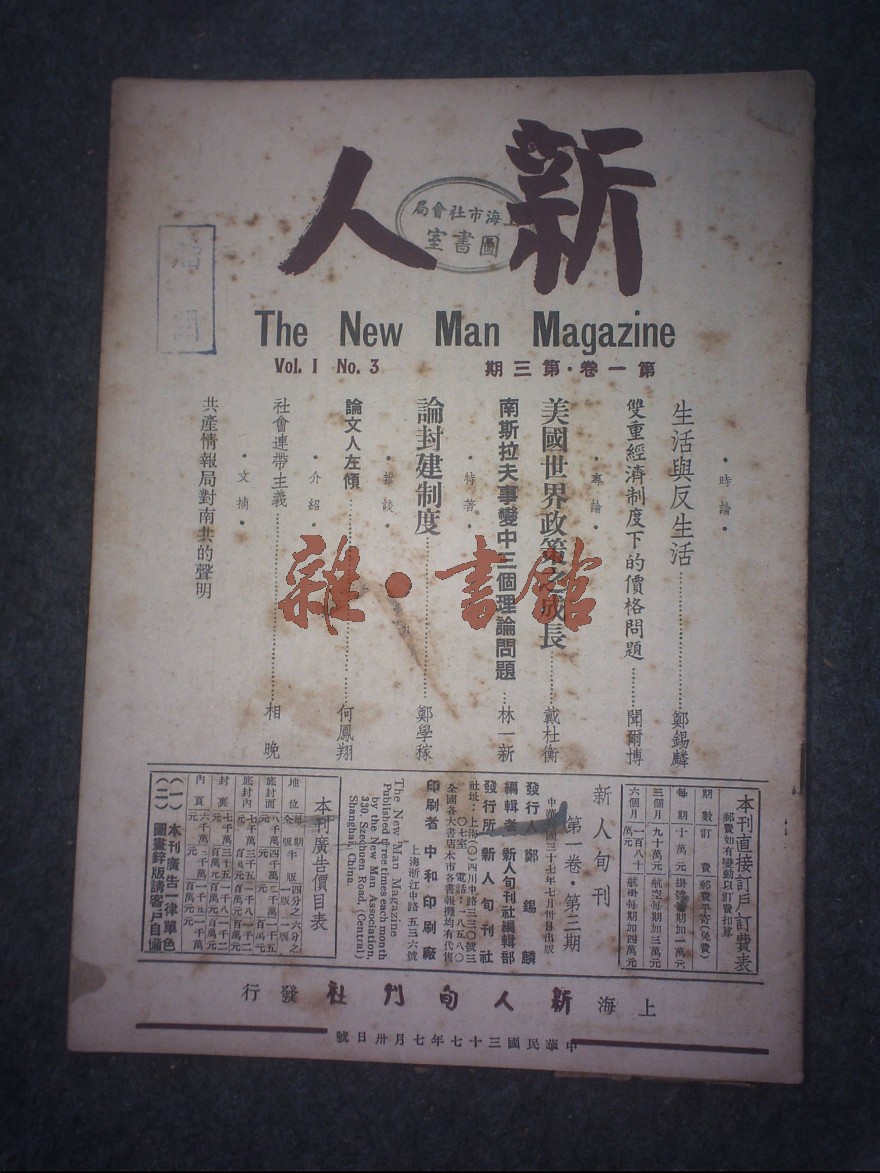 新人
上海市社會局
圖書室
The New Man Magazine
Vol. I No. 3
第一卷・第三期
・時論・
生活與反生活……鄭錫麟
雙重經濟制度下的價格問題……聞爾博
・專論・
美國世界政策之成長……戴杜衡
南斯拉夫事變中三個理論問題……林一新
・特著・
論封建制度……鄭學稼
・雜談・
論文人左傾……何鳳翔
・介紹・
社會連帶主義……相晚
・文摘・
共產情報局對南共的聲明
雜・書館
本刊直接訂戶訂費表
郵費如有變動以訂費折算
期數 訂費 郵費平寄(免費)
每期 十萬元 掛號每期加一萬元
三個月 九十萬元 航空每期加三萬元
六個月 一百八十萬元 航掛每期加四萬元
新人旬刊
第一卷・第三期
中華民國三十七年七月卅日出版
發行人 鄭錫麟
編輯者 新人旬刊社編輯部
發行所 新人旬刊社
社址：上海(0)四川中路三三〇號三〇七室 電話：一八五八〇
全國各大書店本市各書報攤均有代售
印刷者 中和印刷廠
上海浙江中路五三六號
The New Man Magazine
Published three times each month
by the New Man Association,
330, Szechuen Road, (Central)
Shanghai, China.
本刊廣告價目表
地位 每期 全版 半版 四分之一版 六分之一版
底封面
底封內
封裏
內頁
(一)本刊廣告一律單色
(二)圖畫鋅版請客戶自備
上海新人旬刊社發行
中華民國三十七年七月卅日號